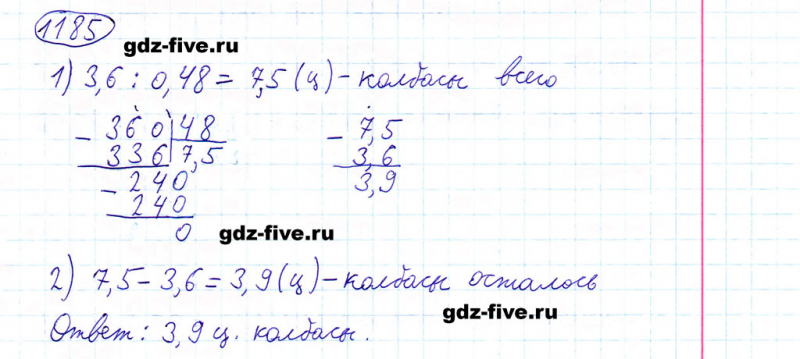 1185
gdz-five.ru
1) 3,6 : 0,48 = 7,5 (ц) - колбасы всего
- 360 | 48
336 | 7,5
- 240
240
0
- 7,5
3,6
3,9
gdz-five.ru
2) 7,5 - 3,6 = 3,9 (ц) - колбасы осталось
gdz-five.ru
Ответ: 3,9 ц. колбасы.